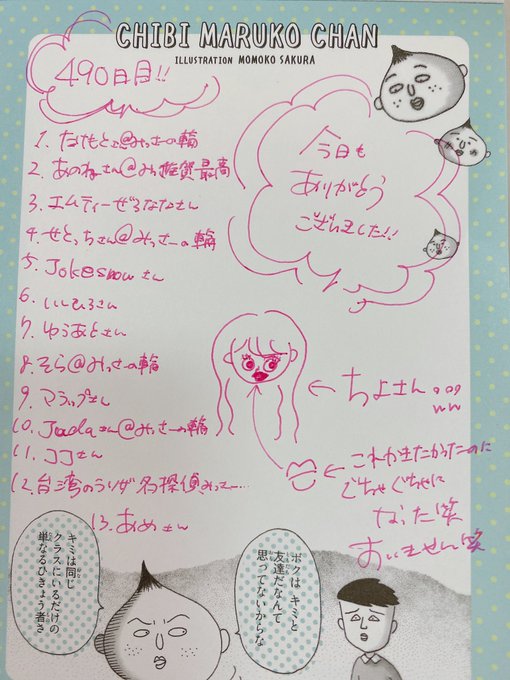 CHIBI MARUKO CHAN
ILLUSTRATION MOMOKO SAKURA
490日目!!
今日も
ありがとう
ございました!!
1. なすもとよ@みっさーの輪
2. あのねさん@みっ雑貨最高
3. エムティーぜろななさん
4. せとっちさん@みっさーの輪
5. Jokesnowさん
6. いしひろさん
7. ゆうあとさん
8. そら@みっさーの輪
9. マラップさん
10. Jadaさん@みっさーの輪
11. ココさん
12. 台湾のうりざ名探偵みって…
13. あめさん
← ちよさん。。。
ww
← これかきたかったのに
ぐちゃぐちゃに
なった笑
すいません笑
キミは同じ
クラスにいるだけの
単なるひきょう者さ
ボクはキミと
友達だなんて
思ってないからな